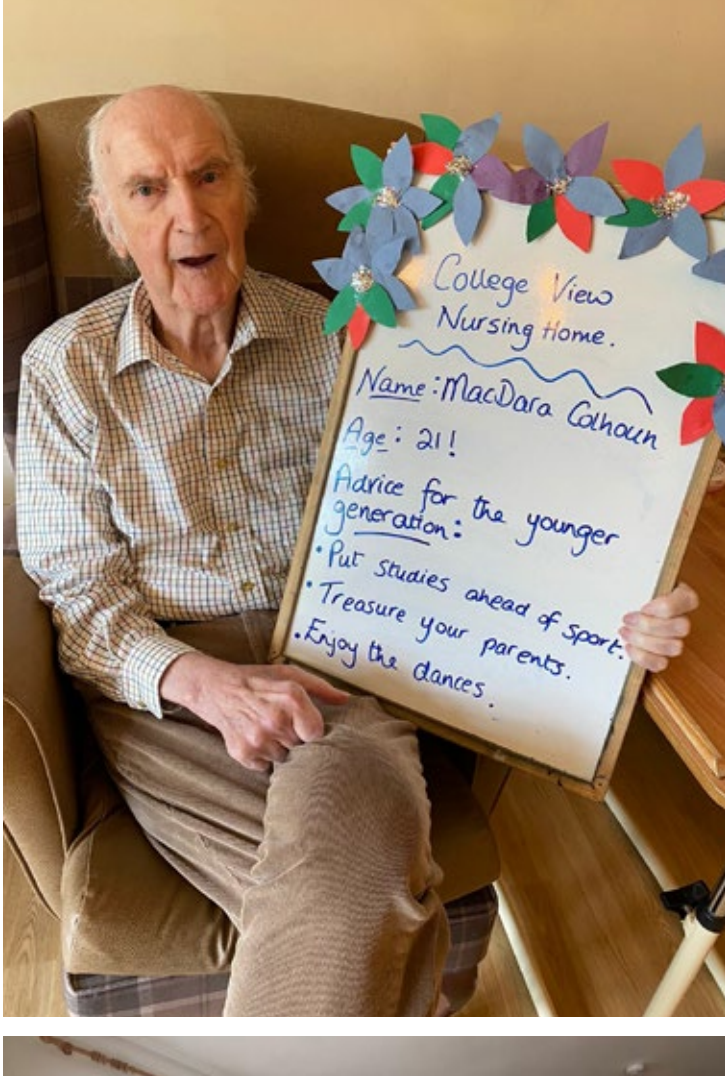 College View
Nursing Home.
Name: MacDara Colhoun
Age: 21!
Advice for the younger
generation:
• Put studies ahead of sport.
• Treasure your parents.
• Enjoy the dances.